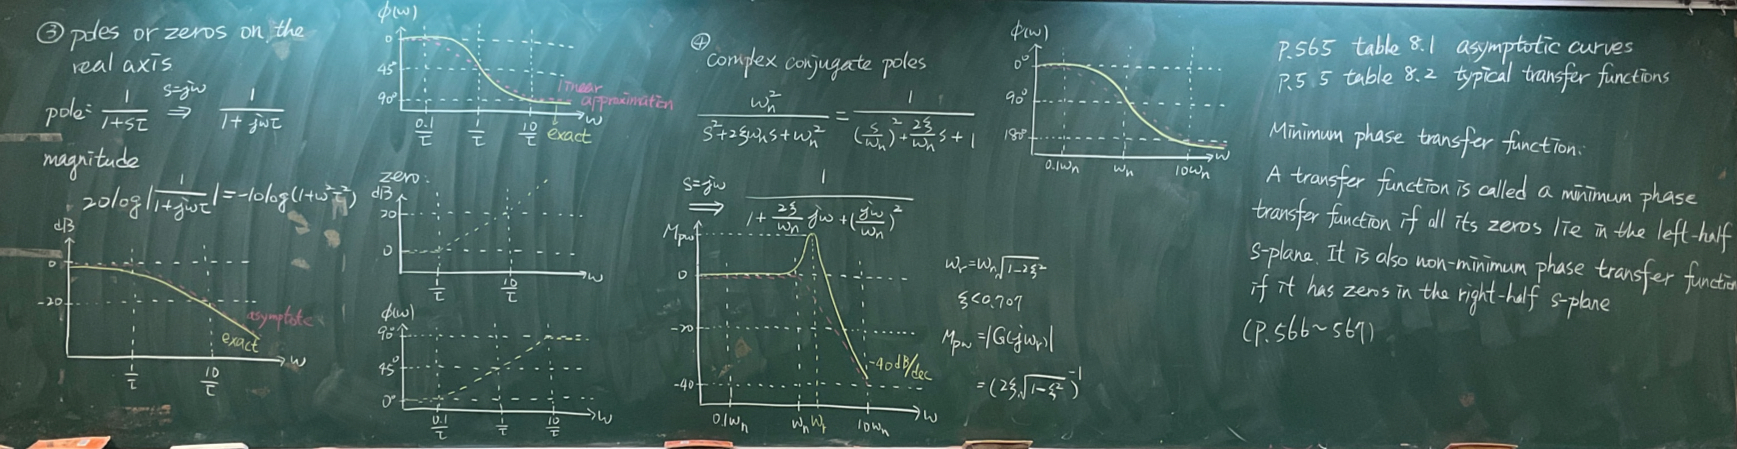 ③ poles or zeros on the
real axis
pole: 1/(1+sτ) s=jω ⇒ 1/(1+jωτ)
magnitude
20log|1/(1+jωτ)| = -10log(1+ω²τ²)
dB
0
-20
asymptote
exact
ω
1/τ 10/τ
ϕ(ω)
0°
45°
90°
linear
approximation
ω
0.1/τ 1/τ 10/τ exact
zero:
dB
20
0
ω
1/τ 10/τ
ϕ(ω)
90°
45°
0°
ω
0.1/τ 1/τ 10/τ
④
complex conjugate poles
ωn²/(s²+2ξωns+ωn²) = 1/((s/ωn)²+(2ξ/ωn)s+1)
s=jω ⇒ 1/(1+(2ξ/ωn)jω+(jω/ωn)²)
Mpω
0
-20
-40
-40dB/dec
ω
0.1ωn ωn ωr 10ωn
ωr=ωn√(1-2ξ²)
ξ<0.707
Mpω=|G(jωr)|
=(2ξ√(1-ξ²))⁻¹
ϕ(ω)
0°
90°
180°
ω
0.1ωn ωn 10ωn
P.565 table 8.1 asymptotic curves
table 8.2 typical transfer functions
Minimum phase transfer function:
A transfer function is called a minimum phase
transfer function if all its zeros lie in the left-half
s-plane. It is also non-minimum phase transfer function
if it has zeros in the right-half s-plane
(P.566~567)